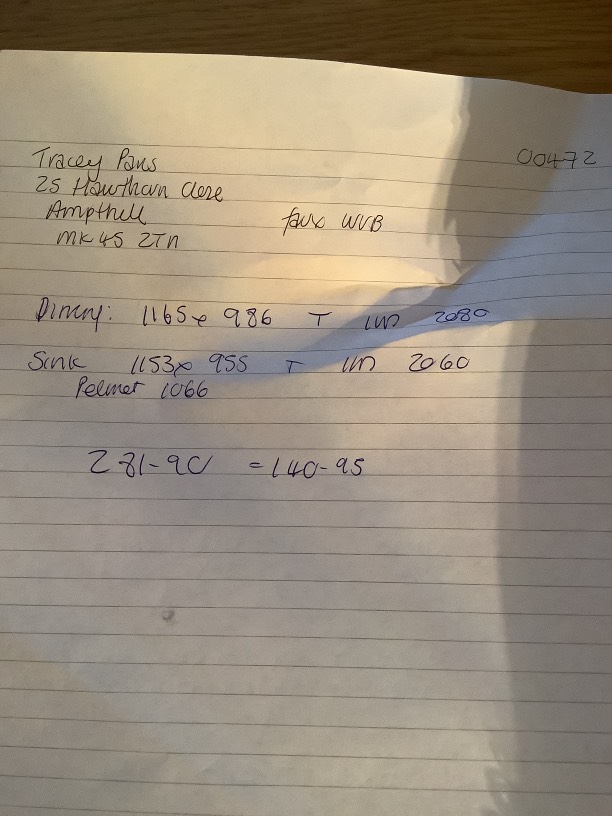 00472
Tracey Pans
25 Hawthorn Close
Ampthill
MK45 2TN
faux WVB
Dining: 1165 x 986 T 2080
Sink 1153 x 955 T 2060
Pelmet 1066
281-90 = 140-95